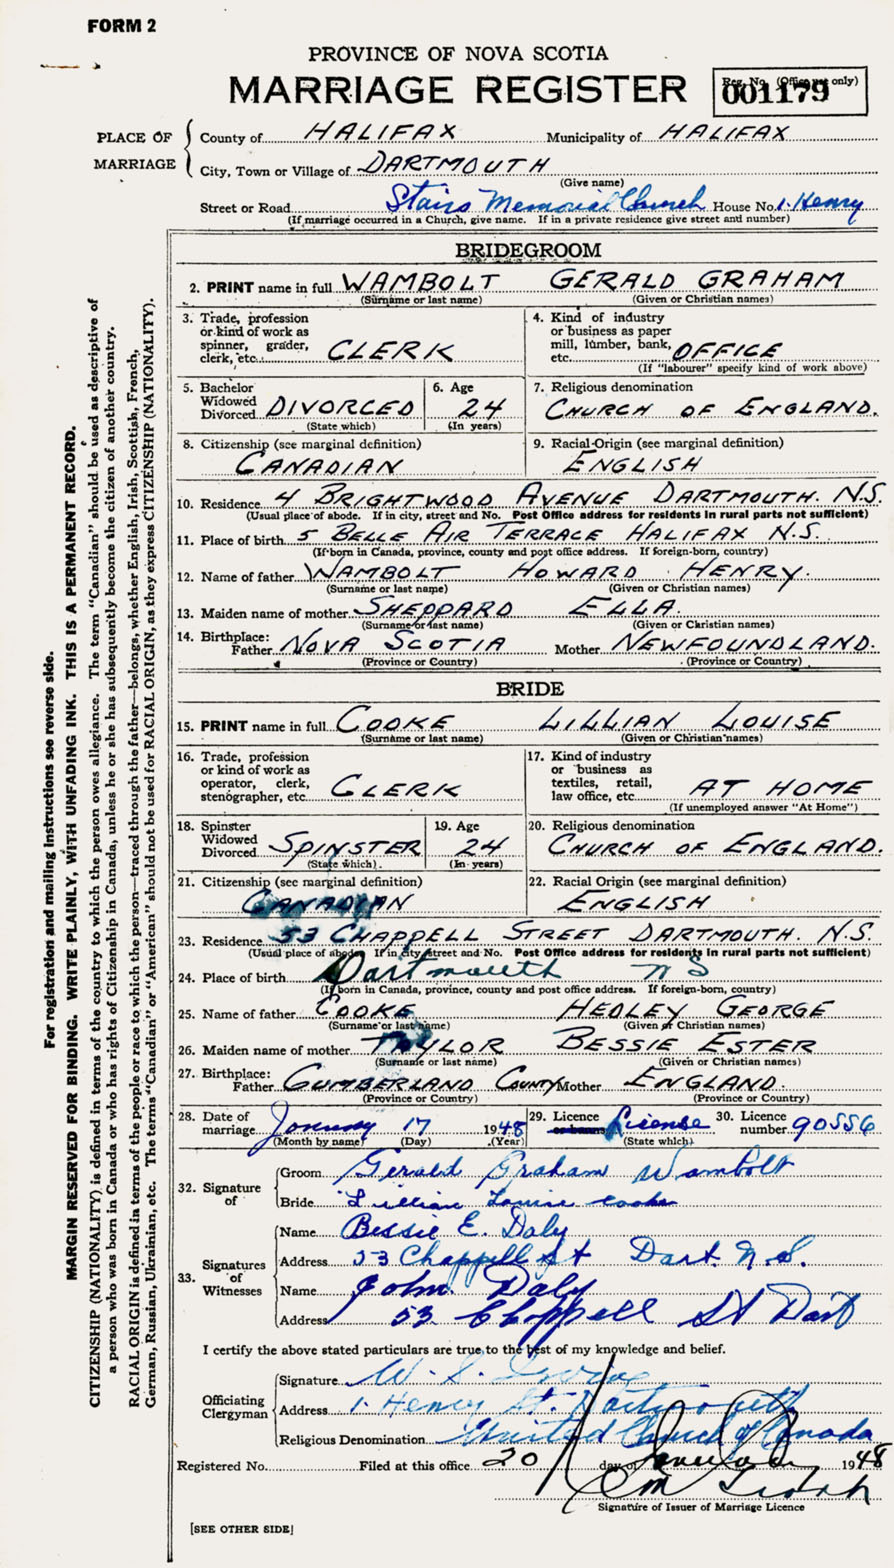 FORM 2
PROVINCE OF NOVA SCOTIA
MARRIAGE REGISTER
Reg. No. (Office use only)
001179
PLACE OF MARRIAGE
County of HALIFAX Municipality of HALIFAX
City, Town or Village of DARTMOUTH
(Give name)
Street or Road Stairs Memorial Church House No. 1. Henry
(If marriage occurred in a Church, give name. If in a private residence give street and number)
BRIDEGROOM
2. PRINT name in full WAMBOLT GERALD GRAHAM
(Surname or last name) (Given or Christian names)
3. Trade, profession or kind of work as spinner, grader, clerk, etc. CLERK
4. Kind of industry or business as paper mill, lumber, bank, etc. OFFICE
(If "labourer" specify kind of work above)
5. Bachelor Widowed Divorced DIVORCED
(State which)
6. Age 24
(In years)
7. Religious denomination
CHURCH OF ENGLAND.
8. Citizenship (see marginal definition)
CANADIAN
9. Racial Origin (see marginal definition)
ENGLISH
10. Residence 4 BRIGHTWOOD AVENUE DARTMOUTH. N.S.
(Usual place of abode. If in city, street and No. Post Office address for residents in rural parts not sufficient)
11. Place of birth 5 BELLE AIR TERRACE HALIFAX N.S.
(If born in Canada, province, county and post office address. If foreign-born, country)
12. Name of father WAMBOLT HOWARD HENRY.
(Surname or last name) (Given or Christian names)
13. Maiden name of mother SHEPPARD ELLA.
(Surname or last name) (Given or Christian names)
14. Birthplace:
Father NOVA SCOTIA Mother NEWFOUNDLAND.
(Province or Country) (Province or Country)
BRIDE
15. PRINT name in full COOKE LILLIAN LOUISE
(Surname or last name) (Given or Christian names)
16. Trade, profession or kind of work as operator, clerk, stenographer, etc. CLERK
17. Kind of industry or business as textiles, retail, law office, etc. AT HOME
(If unemployed answer "At Home")
18. Spinster Widowed Divorced SPINSTER
(State which)
19. Age 24
(In years)
20. Religious denomination
CHURCH OF ENGLAND.
21. Citizenship (see marginal definition)
CANADIAN
22. Racial Origin (see marginal definition)
ENGLISH
23. Residence 53 CHAPPELL STREET DARTMOUTH N.S.
(Usual place of abode. If in city street and No. Post Office address for residents in rural parts not sufficient)
24. Place of birth Dartmouth N S
(If born in Canada, province, county and post office address. If foreign-born, country)
25. Name of father COOKE HEDLEY GEORGE
(Surname or last name) (Given or Christian names)
26. Maiden name of mother TAYLOR BESSIE ESTER
(Surname or last name) (Given or Christian names)
27. Birthplace:
Father CUMBERLAND COUNTY Mother ENGLAND.
(Province or Country) (Province or Country)
28. Date of marriage January 17 1948
(Month by name) (Day) (Year)
29. Licence or banns License
(State which)
30. Licence number 90556
32. Signature of
Groom Gerald Graham Wambolt
Bride Lillian Louise Cooke
33. Signatures of Witnesses
Name Bessie E. Daly
Address 53 Chappell St Dart. N.S.
Name John Daly
Address 53 Chappell St Dart
I certify the above stated particulars are true to the best of my knowledge and belief.
Officiating Clergyman
Signature W. S.
Address 1. Henry St. Dartmouth
Religious Denomination United Church of Canada
Registered No. Filed at this office 20 day of January 1948
Signature of Issuer of Marriage Licence
[SEE OTHER SIDE]
For registration and mailing instructions see reverse side.
MARGIN RESERVED FOR BINDING. WRITE PLAINLY, WITH UNFADING INK. THIS IS A PERMANENT RECORD.
CITIZENSHIP (NATIONALITY) is defined in terms of the country to which the person owes allegiance. The term "Canadian" should be used as descriptive of
a person who was born in Canada or who has rights of Citizenship in Canada, unless he or she has subsequently become the citizen of another country.
RACIAL ORIGIN is defined in terms of the people or race to which the person—traced through the father—belongs, whether English, Irish, Scottish, French,
German, Russian, Ukrainian, etc. The terms "Canadian" or "American" should not be used for RACIAL ORIGIN, as they express CITIZENSHIP (NATIONALITY).